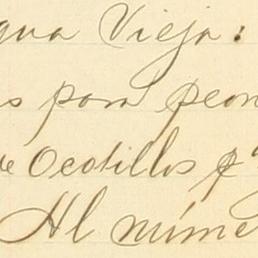 gua Vieja:
s para peon
de Ocotillos pª
Al núme